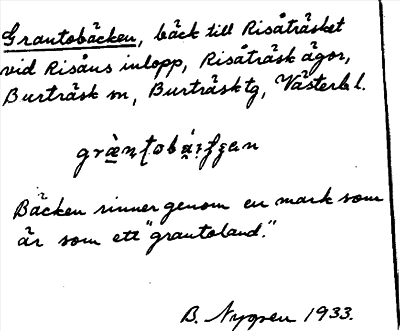 Grantobäcken, bäck till Risåträsket
vid Risåns inlopp, Risåträsk ägor,
Burträsk sn, Burträsk tg, Västerb l.
Bäcken rinner genom en mark som
är som ett "grantoland."
B. Nygren 1933.